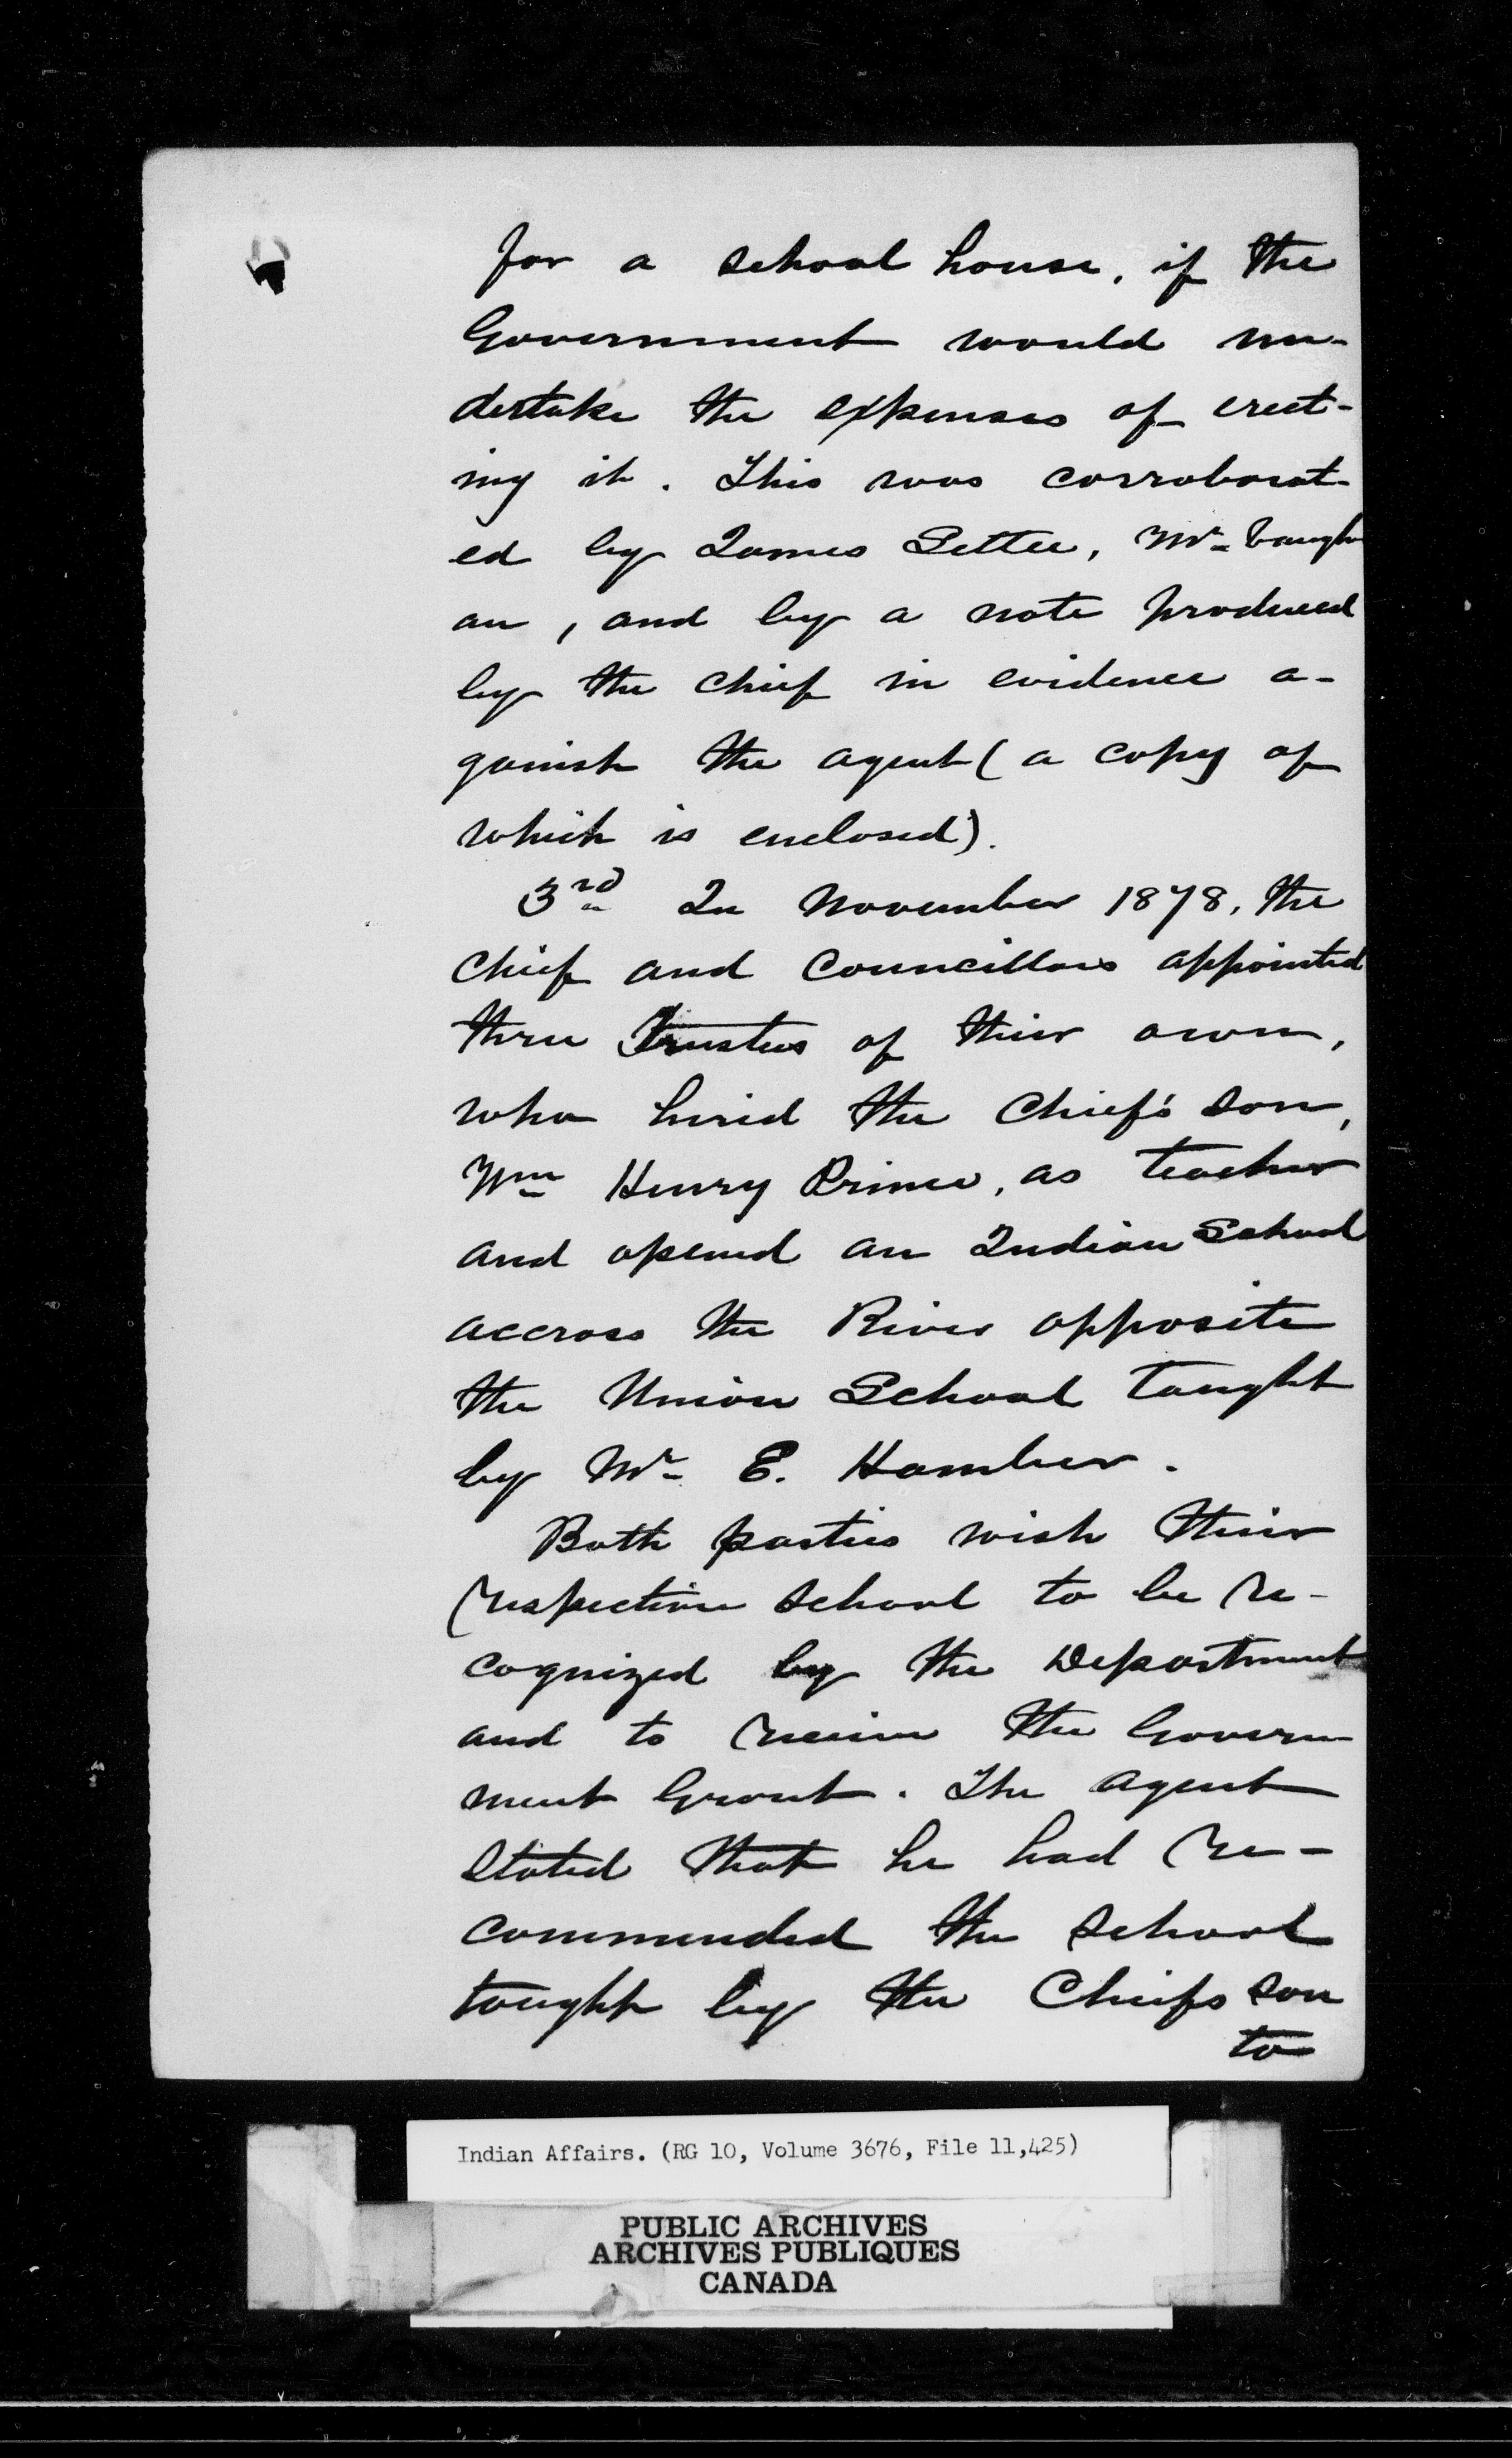 for a school house, if the
Government would un-
dertake the expenses of erect-
ing it. This was corroborat-
ed by James Settee, Mr. Vaugh
an, and by a note produced
by the Chief in evidence a-
gainst the agent (a copy of
which is enclosed).
3rd In November 1878, the
Chief and Councillors appointed
three Trustees of their own,
who hired the Chief's son,
Wm Henry Prince, as teacher
and opened an Indian School
accross the River opposite
the Union School taught
by Mr. E. Hamber.
Both parties wish their
respective school to be re-
cognized by the Department
and to receive the Govern
ment Grant. The agent
stated that he had re-
commended the school
taught by the Chiefs son
to
Indian Affairs. (RG 10, Volume 3676, File 11,425)
PUBLIC ARCHIVES
ARCHIVES PUBLIQUES
CANADA